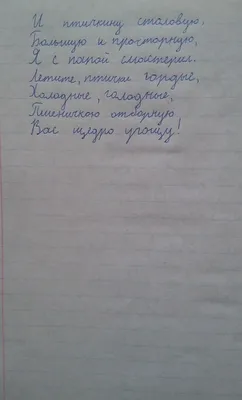 И птичкину столовую,
Большую и просторную,
Я с папой смастерил.
Летите, птички гордые,
Холодные, голодные,
Пшеничкою отборную
Вас щедро угощу!